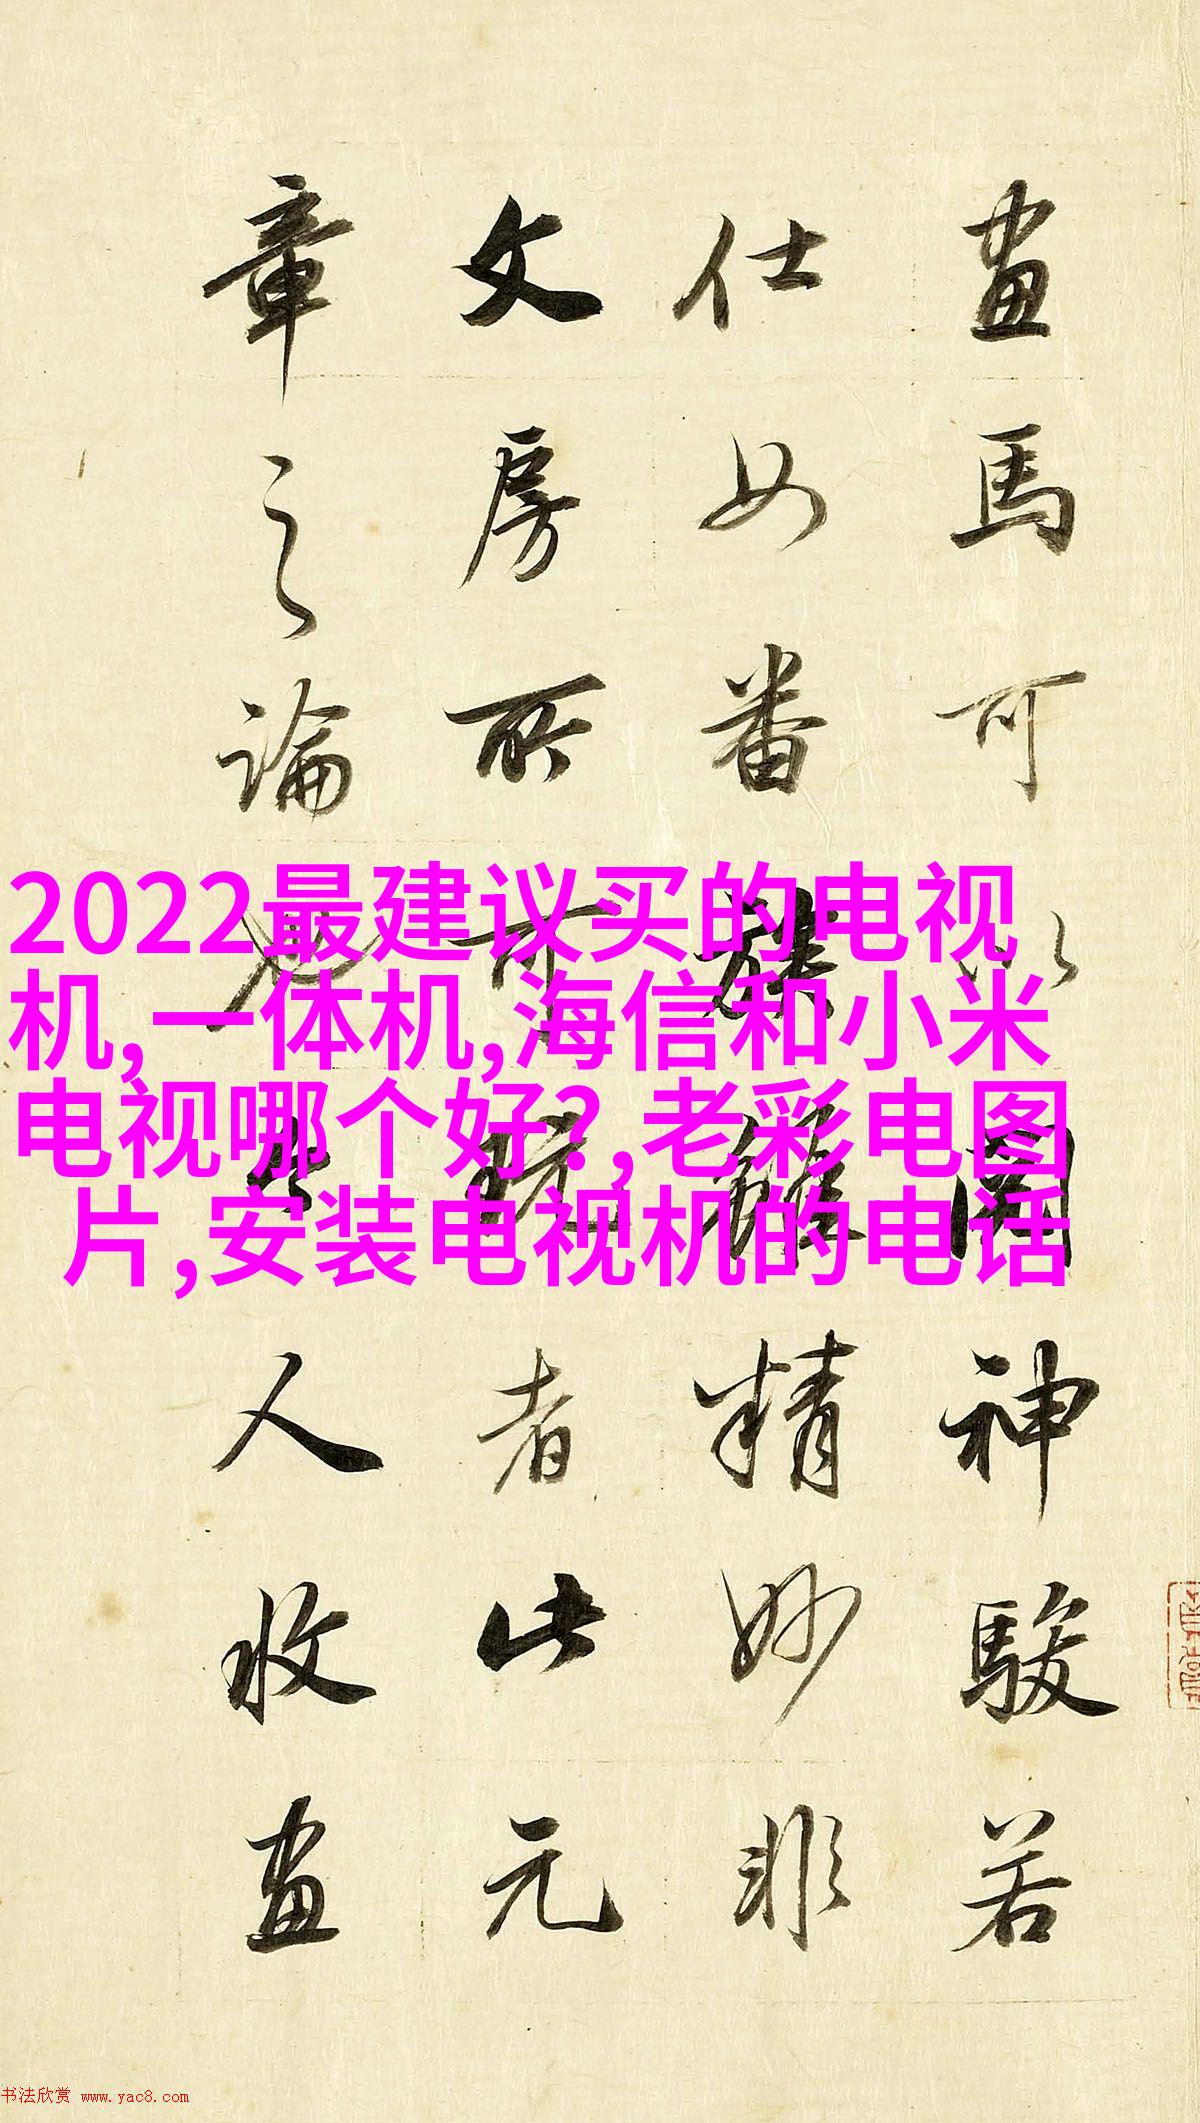 畫馬可以圖神駿若
仕女番族雖精妙非
文房所可玩者此元
章之論也人收畫
2022最建议买的电视
机,一体机,海信和小米
电视哪个好?,老彩电图
片,安装电视机的电话
书法欣赏 www.yac8.com